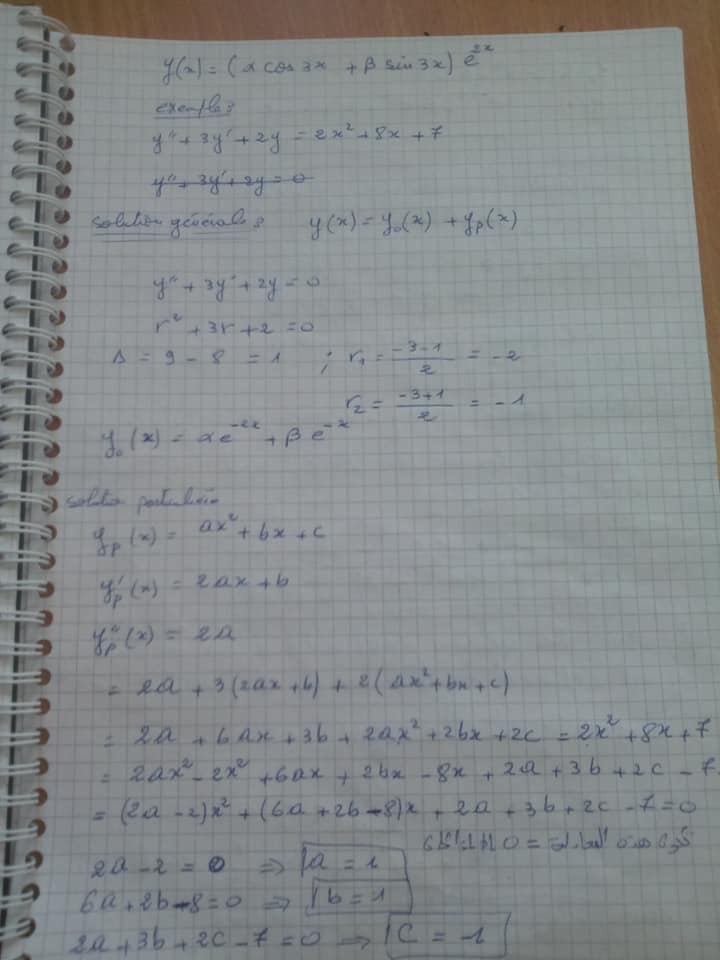 y(x) = (α cos 3x + β sin 3x) e^{2x}
exemple :
y'' + 3y' + 2y = 2x² + 8x + 7
y'' + 3y' + 2y = 0
solution générale : y(x) = y₀(x) + yₚ(x)
y'' + 3y' + 2y = 0
r² + 3r + 2 = 0
Δ = 9 - 8 = 1 ; r₁ = (-3-1)/2 = -2
r₂ = (-3+1)/2 = -1
y₀(x) = αe^{-2x} + βe^{-x}
solution particulière
yₚ(x) = ax² + bx + c
yₚ'(x) = 2ax + b
yₚ''(x) = 2a
= 2a + 3(2ax + b) + 2(ax² + bx + c)
= 2a + 6ax + 3b + 2ax² + 2bx + 2c = 2x² + 8x + 7
= 2ax² - 2x² + 6ax + 2bx - 8x + 2a + 3b + 2c - 7
= (2a - 2)x² + (6a + 2b - 8)x + 2a + 3b + 2c - 7 = 0
2a - 2 = 0 ⇒ a = 1
6a + 2b - 8 = 0 ⇒ b = 1
2a + 3b + 2c - 7 = 0 ⇒ C = -1